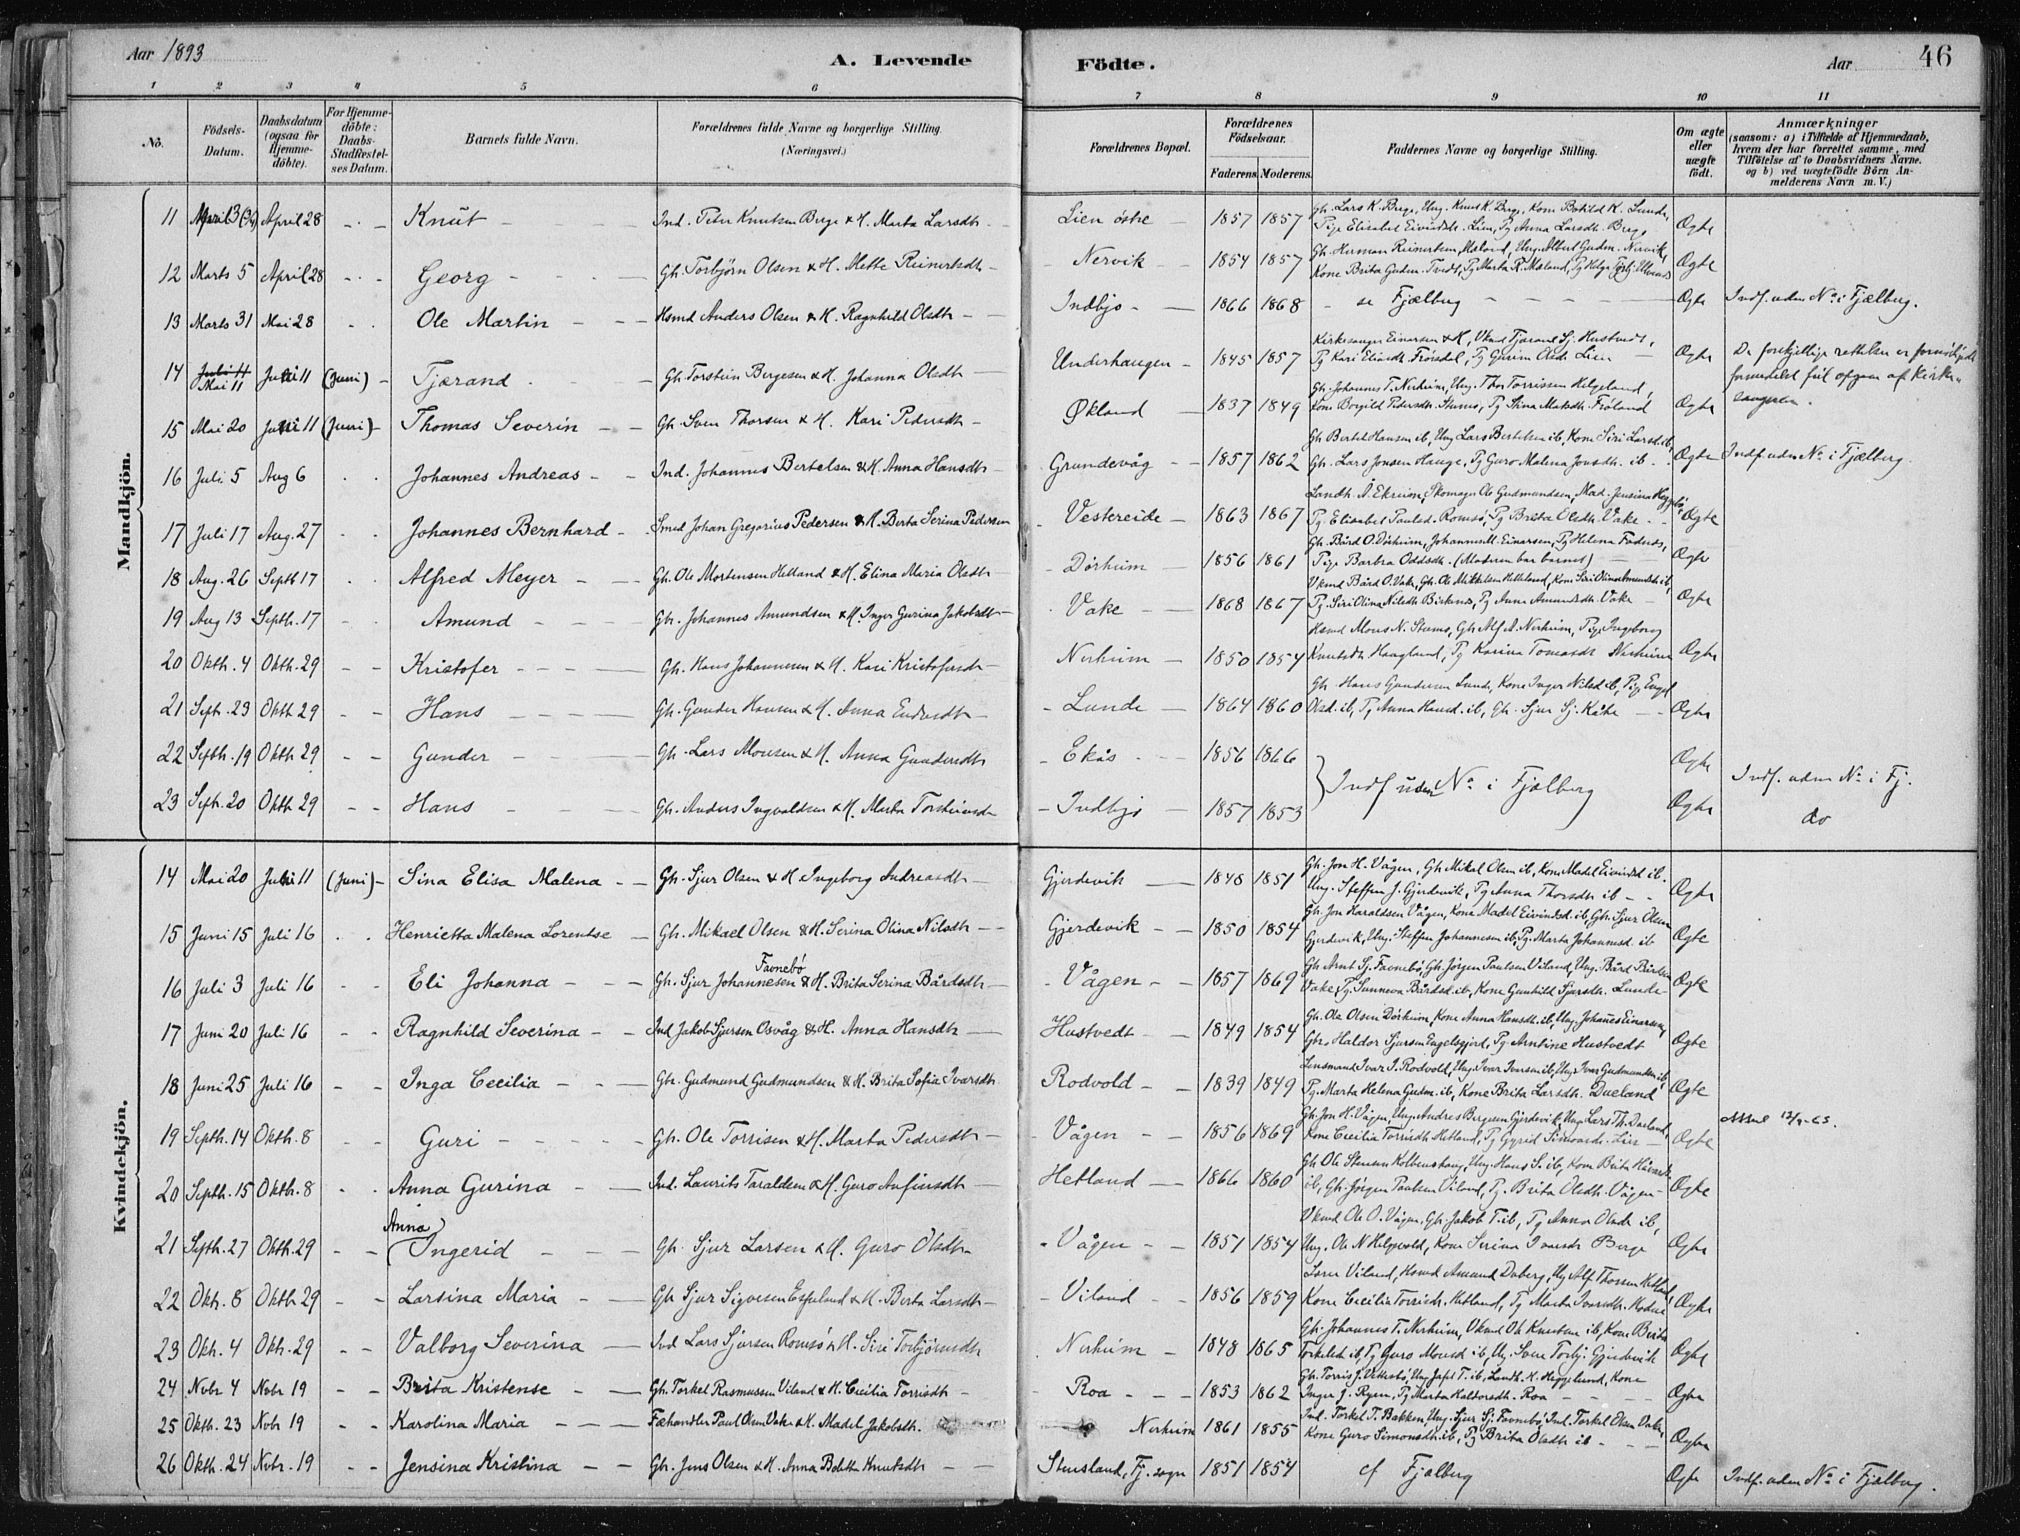 Aar 1893
A. Levende Födte.
Aar
46
1 2 3 4 5 6 7 8 9 10 11
No. Födsels-Datum. Daabsdatum (ogsaa för Hjemme-döbte). For Hjemme-döbte: Daabs-Stadfæstel-ses Datum. Barnets fulde Navn. Forældrenes fulde Navne og borgerlige Stilling. (Næringsvei.) Forældrenes Bopæl. Forældrenes Födselsaar. Faderens. Moderens. Faddernes Navne og borgerlige Stilling. Om ægte eller uægte födt. Anmærkninger (saasom: a) i Tilfælde af Hjemmedaab, hvem der har forrettet samme, med Tilföielse af to Daabsvidners Navne. og b) ved uægtefödte Börn An-melderens Navn m. V.)
Mandkjön.
11 April 28 Knut Ind. Peter Knutsen Berge & H. Marta Larsdtr Lien östre 1857 1857 Gh. Lars K. Berge, Ung. Knut K. Berge, Kone Botild K. Lunde, Pige Elisabet Eivindsdt. Lien, Pg Anna Larsdtr. Berge Ægte
12 Marts 5 April 28 Georg Gh. Torbjörn Olsen & H. Mette Reinertsdtr Nervik 1854 1857 Gh. Herman Reinertsen Mæland, Ung. Albert Gudm. Nervik, Kone Brita Gudm. Tvedt, Pg Marta R. Mæland, Ægte
13 Marts 31 Mai 28 Ole Martin Hsmd Anders Olsen & H. Ragnhild Olsdtr Indbjo 1866 1868 se Fjælberg Ægte Indf. uden No i Fjælberg.
14 Mai 11 Juni 11 (Juni) Tjærand Gh. Torstein Bergesen & H. Johanna Olsdtr Underhaugen 1845 1857 Kirkesanger Einarsen & H, Ukmd Tjærand Sj. Hustvedt, Pg Kari Elines Fröisdal, Pg Gurine Olsdtr Lien Ægte De forskjellige rettelser er formedelst feil opgave af Kirke-sangeren.
15 Mai 20 Juni 11 (Juni) Thomas Severin Gh. Sven Thorsen & H. Kari Pedersdtr Økland 1837 1849 Gh. Johannes T. Nerheim, Ung. Thor Torrissen Helgeland, Kone Borgild Pedersdtr. Stumo, Pg Stina Maksdtr. Fröland Ægte
16 Juli 5 Aug 6 Johannes Andreas Ind. Johannes Bertelsen & H. Anna Hansdtr Grundevåg 1857 1862 Gh Bertel Hansen ib, Ung Lars Bertelsen ib, Kone Siri Larsd. ib, Gh. Lars Jonsen Hauge, Pg Guro Malena Jonsdtr. ib Ægte Indf uden No i Fjælberg
17 Juli 17 Aug. 27 Johannes Bernhard Smed Johan Gregorius Pedersen & H. Berta Serina Pedersen Vestreide 1863 1867 Landh. Å. Ekreim, Skomager Ole Gudmundsen, Mad. Jensina Heggelö, Pg. Elisabet Paulsd. Romsö, Pg Brita Olsdtr. Vake Ægte
18 Aug. 26 Septb 17 Alfred Meyer Gh. Ole Mortensen Hetland & H. Elina Maria Olsdtr Dörheim 1856 1861 Gh. Bård O. Dörheim, Johannes M. Einarsen, Pg Helena Foderes, Pige Barbra Oddsdtr. (Moderen bar barnet) Ægte
19 Aug 13 Septb. 17 Amund Gh. Johannes Amundsen & H. Inger Gurina Jakobsdtr Vake 1868 1867 Ukmd Bård O. Vake, Gh. Ole Mikkelsen Helleland, Kone Siri Olina Amundsdtr ib, Pg. Siri Olina Nilsdtr Birknes, Pg Anna Amundsdtr Vake Ægte
20 Oktb. 4 Oktb. 29 Kristofer Gh. Hans Johannesen & H. Kari Kristofersdtr Nerheim 1850 1854 Hsmd Mons N. Stumo, Gh. Alf A. Nerheim, Pige Ingeborg Knutsdtr Haagland, Pg Karina Tomasdtr Nerheim Ægte
21 Septb. 23 Oktb 29 Hans Gh. Gunder Hansen & H. Anna Endresdtr Lunde 1864 1860 Gh Hans Gundersen Lunde, Kone Inger Nilsd ib, Pige Engel Olsd. ib, Pg Anna Hansd. ib, Gh. Sjur Sj. Kåte Ægte
22 Septb. 19 Oktb 29 Gunder Gh. Lars Monsen & H. Anna Gundersdtr Ekås 1856 1866 Indf uden No i Fjælberg Ægte Indf. uden No i Fj.
23 Septb. 20 Oktb 29 Hans Gh. Anders Ingvaldsen & H. Marta Torsteinsdtr Indbjo 1857 1853 Ægte do
Kvindekjön.
14 Mai 20 Juni 11 (Juni) Sina Elisa Malena Gh. Sjur Olsen & H. Ingeborg Andreasdtr Gjerdevik 1848 1851 Gh. Jon H. Vågen, Gh. Mikal Olsen ib, Kone Madel Eivindsd ib. Ung. Steffen J. Gjerdevik, Pg Anna Thorsdtr ib Ægte
15 Juni 15 Juli 16 Henrietta Malena Lorentse Gh. Mikael Olsen & H. Serina Olina Nilsdtr Gjerdevik 1850 1854 Gh. Jon Haraldsen Vågen, Kone Madel Eivindsd. ib, Gh. Sjur Olsen Gjerdevik, Ung. Steffen Johannesen ib, Pg. Marta Johannesd. ib Ægte
16 Juli 3 Juli 16 Eli Johanna Gh. Sjur Johannesen Favnebö & H. Brita Serina Bårdsdtr Vågen 1857 1869 Gh Arnt Sj. Favnebö, Gh. Jörgen Paulsen Viland, Ung. Bård Vake, Pg. Sunneva Bårdsd. ib, Kone Gunhild Sjursdtr. Lunde Ægte
17 Juni 20 Juli 16 Ragnhild Severina Ind Jakob Sjursen Osvåg & H. Anna Hansdtr Hustvedt 1849 1854 Gh. Ole Olsen Dörheim, Kone Anna Hansdtr. ib, Ung. Johanes Einarsen, Gh. Haldor Sjursen Engelsgjerd, Pg Arntine Hustvedt Ægte
18 Juni 25 Juli 16 Inga Cecilia Gh. Gudmund Gudmundsen & H. Brita Sofia Ivarsdtr Rodvold 1839 1849 Lensmand Ivar I. Rodvold, Ung. Ivar Ivarsen ib, Ung. Ivar Gudmundsen ib, Pg. Marta Helena Gudm. ib, Kone Brita Larsdtr. Dueland Ægte
19 Septb. 14 Oktb. 8 Guri Gh. Ole Torrisen & H. Marta Pedersdtr Vågen 1856 1869 Gh. Jon H. Vågen, Ung. Andres Bergesen Gjerdevik, Ung. Lars Th. Kone Cecilia Torrisdtr Hetland, Pg Gyrid Lien Ægte
20 Septb. 15 Oktb. 8 Anna Gurina Ind. Laurits Taraldsen & H. Guro Anfinsdtr Hetland 1866 1860 Gh Ole Stensen Kolbenshaug, Ung. Hans S. ib, Kone Brita ib, Gh. Jörgen Paulsen Viland, Pg. Brita Olsdtr. Vågen Ægte
21 Septb. 27 Oktb. 29 Anna Ingerid Gh. Sjur Larsen & H. Guro Olsdtr Vågen 1851 1854 Ukmd Ole O. Vågen, Gh. Jakob T. ib, Pg Anna Olsdtr ib, Ung. Ole N Helgevold, Kone Serina Ivarsdtr Berge Ægte
22 Oktb. 8 Oktb 29 Larsina Maria Gh Sjur Sigvesen Espeland & H. Berta Larsdtr Viland 1856 1859 Viland, Hsmd Amund Doberg, Ung Alf Thorsen Hetland, Kone Cecilia Torrisdtr. Hetland, Pg Marta Ivarsdtr. Ægte
23 Oktb. 4 Oktb. 29 Valborg Severina Ind Lars Sjursen Romsö & H. Siri Torbjörnsdtr Nerheim 1848 1865 Gh. Johannes T. Nerheim, Ukmd Ole Knutsen ib, Kone Berta Torkelsdtr ib, Pg Guro Monsd ib, Ung. Sven Torbj. Gjerdevik Ægte
24 Novbr 4 Novbr 19 Brita Kristense Gh. Torkel Rasmussen Viland & H. Cecilia Torrisdtr Roa 1853 1862 Gh. Torris J. Ung. Jafet T. ib, Landh. K. Heggelund, Kone Inger J. Ryen, Pg Marta Haldorsdtr. Roa Ægte
25 Oktb. 23 Novbr 19 Karolina Maria Fæhandler Paul Olsen Vake & H. Madel Jakobsdtr. Nerheim 1861 1855 Ind. Torkel T. Bakken, Ung. Sjur Sj. Favnebö, Ind. Torkel Olsen Vake, Kone Guro Simonsdtr. ib, Pg Brita Olsdtr ib Ægte
26 Oktb. 24 Novbr. 19 Jensina Kristina Gh. Jens Olsen & H. Anna Bolette Knutsdtr Stensland, Fj. sogn 1851 1854 cf Fjælberg Ægte Indf. uden No i Fjælberg.